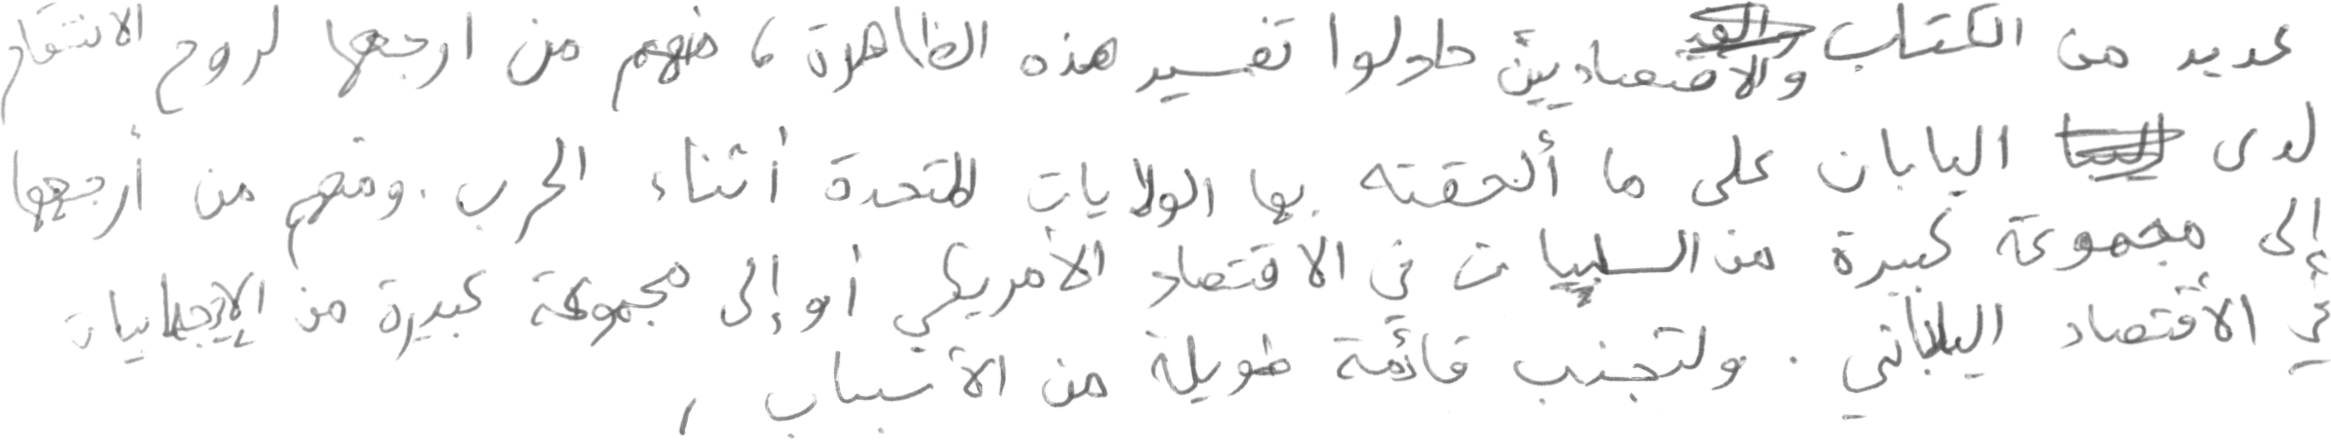 عديد من الكتاب والاقتصاديين حاولوا تفسير هذه الظاهرة، منهم من ارجعها لروح الانتقام
لدى اليابان على ما ألحقته بها الولايات المتحدة أثناء الحرب. ومنهم من أرجعها
إلى مجموعة كبيرة من السلبيات في الاقتصاد الأمريكي أو إلى مجموعة كبيرة من الإيجابيات
في الأقتصاد الياباني. ولتجنب قائمة طويلة من الأسباب,